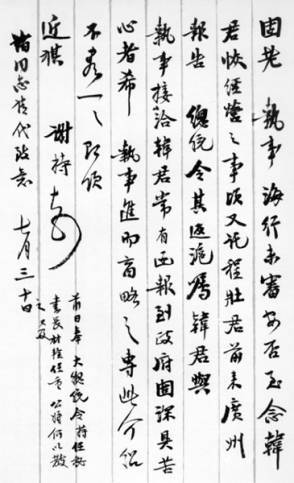 固老 執事 海行未審安否至念韓
君恢經營之事頃又託程壯君前來廣州
報告 總統令其返滬爲韓君與
執事接洽韓君常有函報到政府固深具苦
心者希 執事進而商略之專此介紹
不盡一一即頌
近祺 謝持
諸同志請代致意 七月三十日
前日奉 大總統令特任秘
書長 任重 公將何以教
之 又及